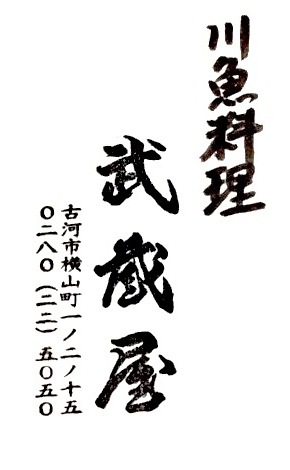 川魚料理
武蔵屋
古河市横山町一ノ二ノ十五
〇二八〇(二二)五〇五〇